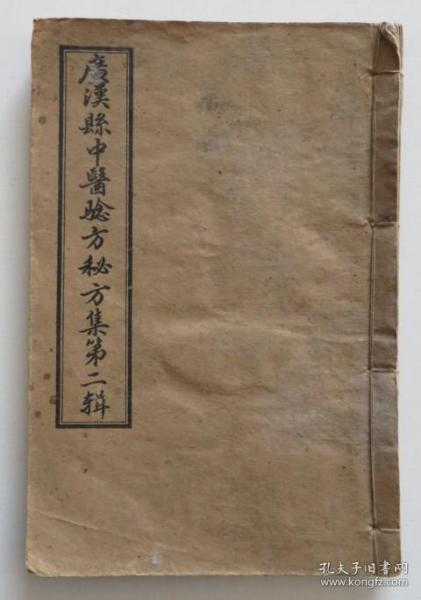 廣漢縣中醫驗方秘方集第二辑
孔夫子旧书网
www.kongfz.com